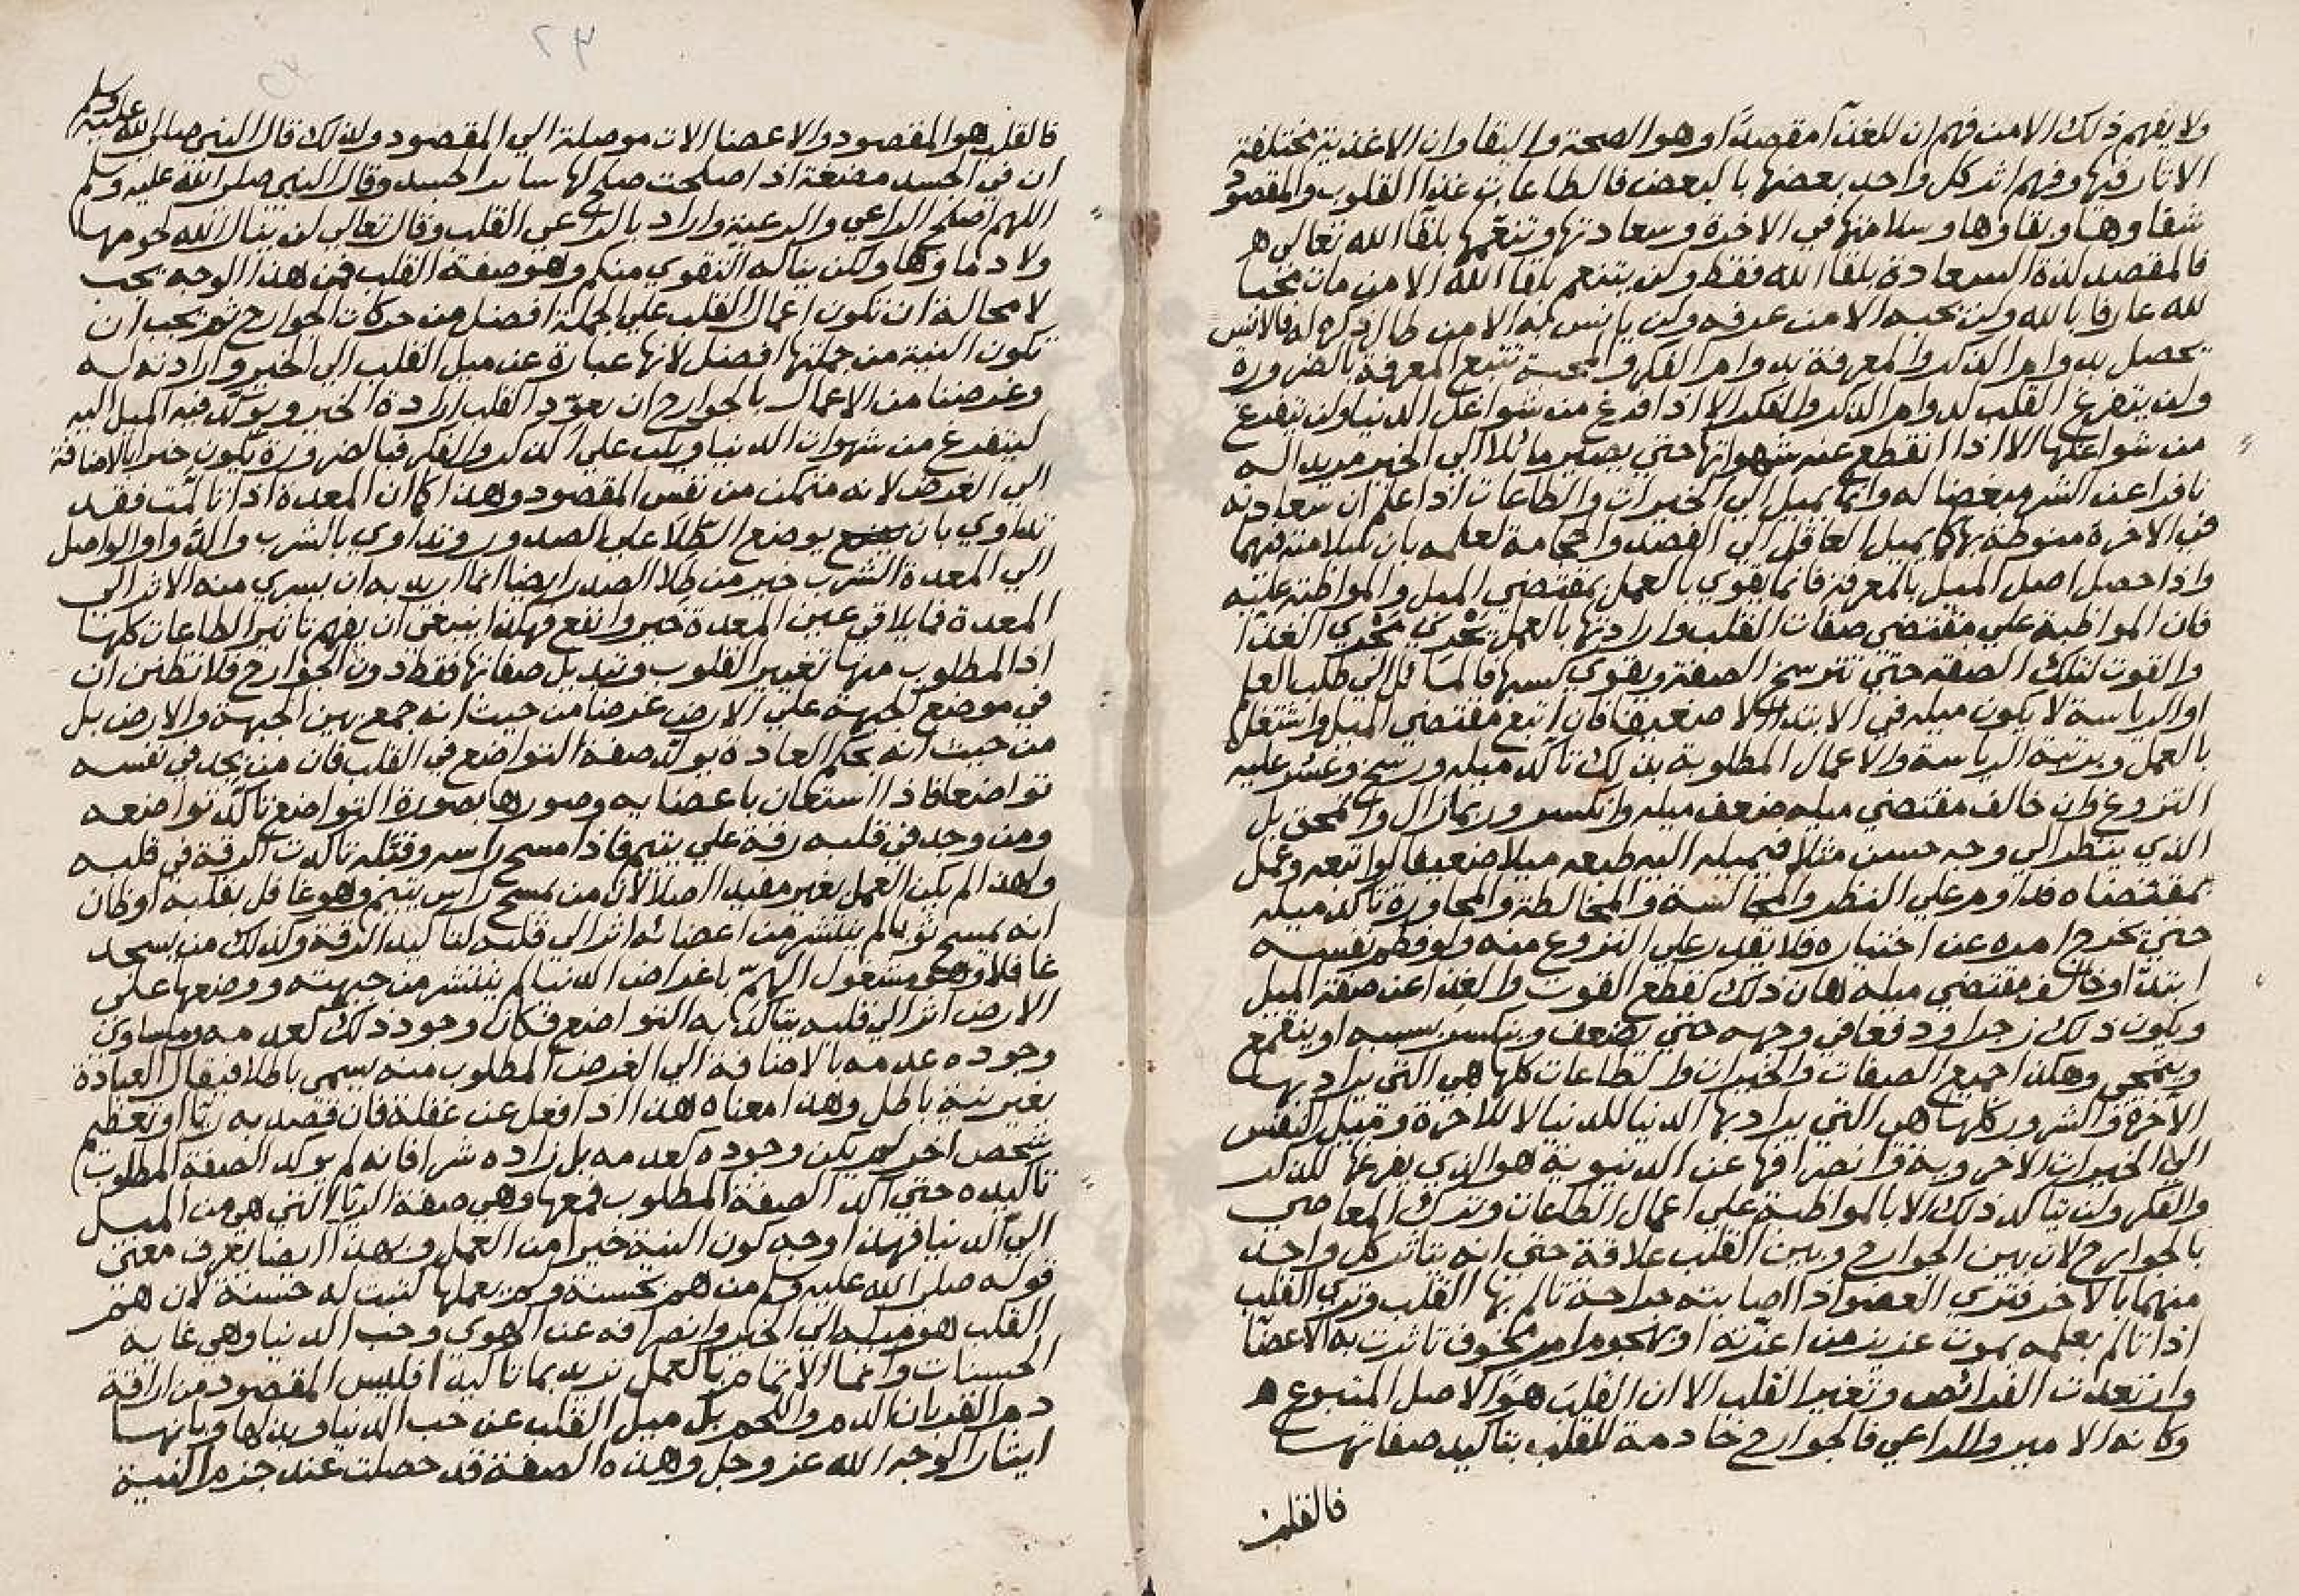 ولا يفهم ذلك الا من فهم ان للغذآ مقصدًا وهو الصحة والبقا وان الاغذية مختلفة
الاثار فيها وفهم اثر كل واحد بعضها بالبعض فالطاعات غذا القلوب والمقصود
شفاوها وبقاوها وسلامتها في الاخرة وسعادتها وتنعمها بلقآ الله تعالى
فالمقصد لذة السعادة بلقا الله فقط ولن يتنعم بلقا الله الا من مات محبا
لله عارفا بالله ولن يحبه الا من عرفه ولن يانس به الا من طال ذكره له فالانس
يحصل بدوام الذكر والمعرفة بدوام الفكر والمحبة تتبع المعرفة بالضرورة
ولن يتفرغ القلب لدوام الذكر والفكر الا اذا فرغ من شواغل الدنيا ولن يتفرغ
من شواغلها الا اذا انقطع عنه شهواتها حتي يصير مائلا الي الخير مريدا له
نافرا عن الشر مبغضا له وانما يميل الي الخيرات والطاعات اذا علم ان سعادته
في الاخرة منوطة بها كما يميل العاقل الي الفصد والحجامة لعلمه بان سلامته فيهما
واذا حصل اصل الميل بالمعرفة فانما يقوي بالعمل بمقتضي الميل والمواظبة عليه
فان المواظبة علي مقتضي صفات القلب وارادتها بالعمل تجري مجري الغذآ
والقوت لتلك الصفة حتي تترسخ الصفة وتقوي بسببها فالمائل الي طلب العلم
او الرياسة لا يكون ميله في الابتدا الا ضعيفا فان اتبع مقتضي الميل واشتغل
بالعمل وتربية الرياسة والاعمال المطلوبة بذلك تاكد ميله ورسخ وعسر عليه
النزوع وان خالف مقتضي ميله ضعف ميله وانكسر وربما زال وانمحق بل
الذي ينظر الي وجه حسن مثلا فيميل اليه طبعه ميلا ضعيفا لو اتبعه وعمل
بمقتضاه فداوم علي النظر والمجالسة والمخالطة والمجاورة تاكد ميله
حتي يخرج امره عن اختياره فلا يقدر علي النزوع عنه ولو فطم نفسه
ابتدآ وخالف مقتضي ميله لكان ذلك كقطع القوت والغذا عن صفة الميل
ويكون ذلك زجرا ودفعا في وجهه حتي يضعف وينكسر بسببه او ينقمع
وينمحي وهكذا جميع الصفات والخيرات والطاعات كلها هي التي يراد بها
الاخرة والشرور كلها هي التي يراد بها الدنيا للدنيا لا للاخرة وميل النفس
الي الخيرات الاخروية وانصرافها عن الدنيوية هو الذي يفرغها للذكر
والفكر ولن يتاكد ذلك الا بالمواظبة علي اعمال الطاعات وترك المعاصي
بالجوارح لان بين الجوارح وبين القلب علاقة حتي انه يتاثر كل واحد
منهما بالاخر فتري العضو اذا اصابته جراحة تالم بها القلب وتري القلب
اذا تالم بعلمه بموت عزيز من اعزته او بهجوم امر مخوف تاثرت به الاعضآ
وارتعدت الفرائص وتغير القلب الا ان القلب هو الاصل المتبوع
وكانه الامير والراعي فالجوارح خادمة للقلب بتاكيد صفاتها
فالقلب
فالقلب هو المقصود والاعضا الات موصلة الي المقصود ولذلك قال النبي صلي الله عليه وسلم
ان في الجسد مضغة اذا صلحت صلح لها سائر الجسد وقال النبي صلي الله عليه وسلم
اللهم اصلح الراعي والرعية واراد بالراعي القلب وقال تعالي لن ينال الله لحومها
ولا دماؤها ولكن يناله التقوي منكم وهو صفة القلب فمن هذا الوجه يجب
لا محالة ان تكون اعمال القلب علي الجملة افضل من حركات الجوارح ثم يجب ان
تكون النية من جملتها افضل لانها عبارة عن ميل القلب الي الخير وارادته له
وغرضنا من الاعمال بالجوارح ان يعوّد القلب ارادة الخير ويوكد فيه الميل اليه
ليتفرغ من شهوات الدنيا ويكب علي الذكر والفكر فبالضرورة تكون خيرا بالاضافة
الي الغرض لانه متمكن من نفس المقصود وهذا كما ان المعدة اذا تالمت فقد
تداوي بان يوضع الطلا علي الصدر وتداوي بالشرب والدوا الواصل
الي المعدة الشرب خير من طلا الصدر ايضا انما اريد به ان يسري منه الاثر الي
المعدة فما يلاقي عين المعدة خير وانفع فهكذا ينبغي ان يفهم تاثير الطاعات كلها
اذ المطلوب منها تغيير القلوب وتبديل صفاتها فقط دون الجوارح فلا تظنن ان
في موضع الجبهة علي الارض غرضا من حيث انه جمع بين الجبهة والارض بل
من حيث انه بحكم العادة يوكد صفة التواضع في القلب فان من يجد في نفسه
تواضعا فاذا استعان باعضايه وصورها بصورة التواضع تاكد تواضعه
ومن وجد في قلبه رقة علي يتيم فاذا مسح راسه وقبّله تاكدت الرقة في قلبه
ولهذا لم يكن العمل بغير مفيد اصلا لان من يمسح راس يتيم وهو غافل بقلبه او ظان
انه يمسح ثوبا لم ينتشر من اعضائه اثر الي قلبه لتاكيد الرقة وكذلك من يسجد
غافلا وهو مشغول الهمّ باغراض الدنيا لم ينتشر من جبهته ووضعها علي
الارض اثر الي قلبه يتاكد به التواضع فكان وجود ذلك كعدمه وما ساوي
وجوده عدمه بالاضافة الي الغرض المطلوب منه يسمي باطلا فيقال العبادة
بغير نية باطل وهذا معناه هذا اذا فعل عن غفلة فان قصد به ريآ او تعظيم
شخص اخر لم يكن وجوده كعدمه بل زاده شرا فانه لم يوكد الصفة المطلوب
تاكيده حتي اكد الصفة المطلوب قمعها وهي صفة الريآ التي هي من الميل
الي الدنيا فهذا وجه كون النية خيرا من العمل وبهذا ايضا يعرف معني
قوله صلي الله عليه وسلم من هم بحسنة ولم يعملها كتبت له حسنة لان هم
القلب هو ميله الي الخير وانصرافه عن الهوي وحب الدنيا وهي غاية
الحسنات وانما الاتمام بالعمل تزيدها تاكيدا فليس المقصود من اراقة
دم القربان الدم واللحم بل ميل القلب عن حب الدنيا وبذلها
ايثارا لوجه الله عز وجل وهذه الصفة قد حصلت عند جزم النية